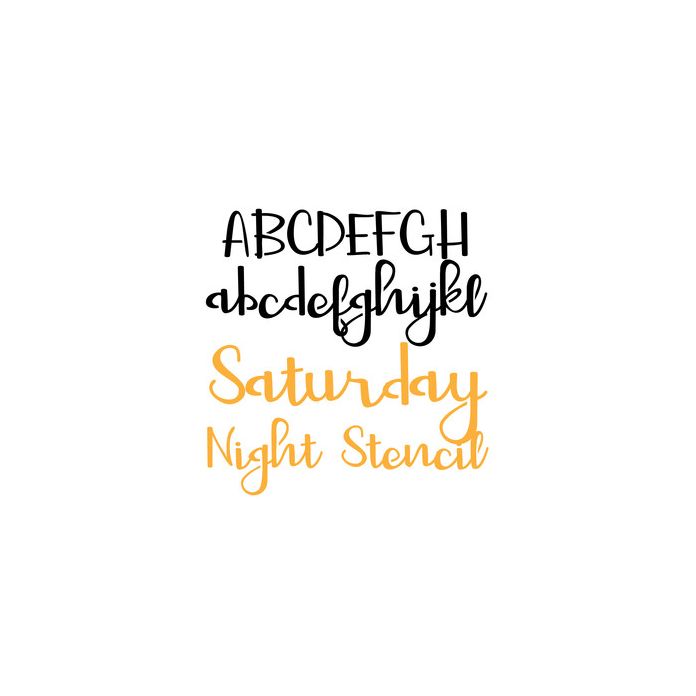 ABCDEFGH
abcdefghijkl
Saturday
Night Stencil